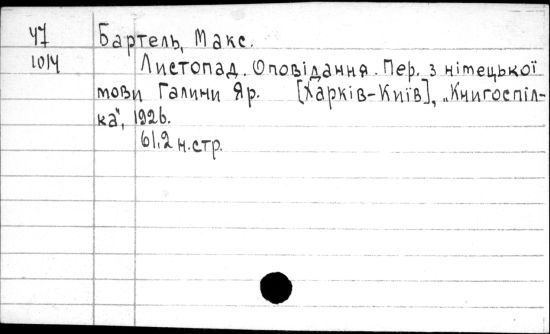 47 Бартель, Макс.
1014 Листопад. Оповідання. Пер. з німецької
мови Галини Яр. [Харків-Київ], „Книгоспіл-
ка“, 1926.
61,2 н.стр.